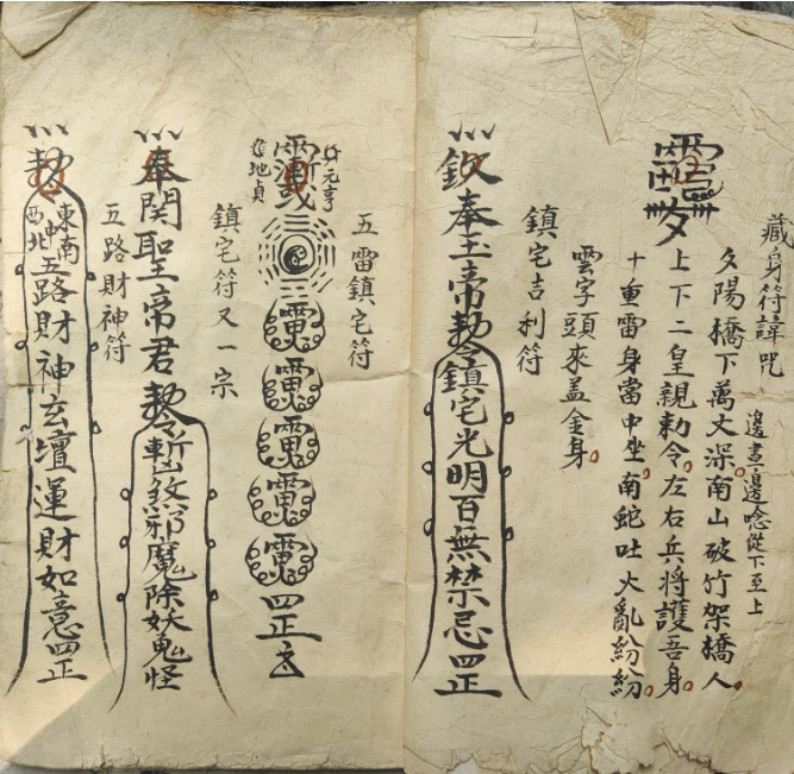 藏身符諱咒
邊畫邊唸從下至上
夕陽橋下萬丈深。南山破竹架橋人。
上下二皇親勅令。左右兵將護吾身。
十重雷身當中坐。南蛇吐火亂紛紛。
雲字頭來盖金身。
鎮宅吉利符
奉玉帝勅令鎮宅光明百無禁忌罡
五雷鎮宅符
元亨
地貞
鎮宅符又一宗
奉関聖帝君勅令斬煞邪魔除妖鬼怪
五路財神符
勅
東南
中
西北
五路財神玄壇運財如意罡